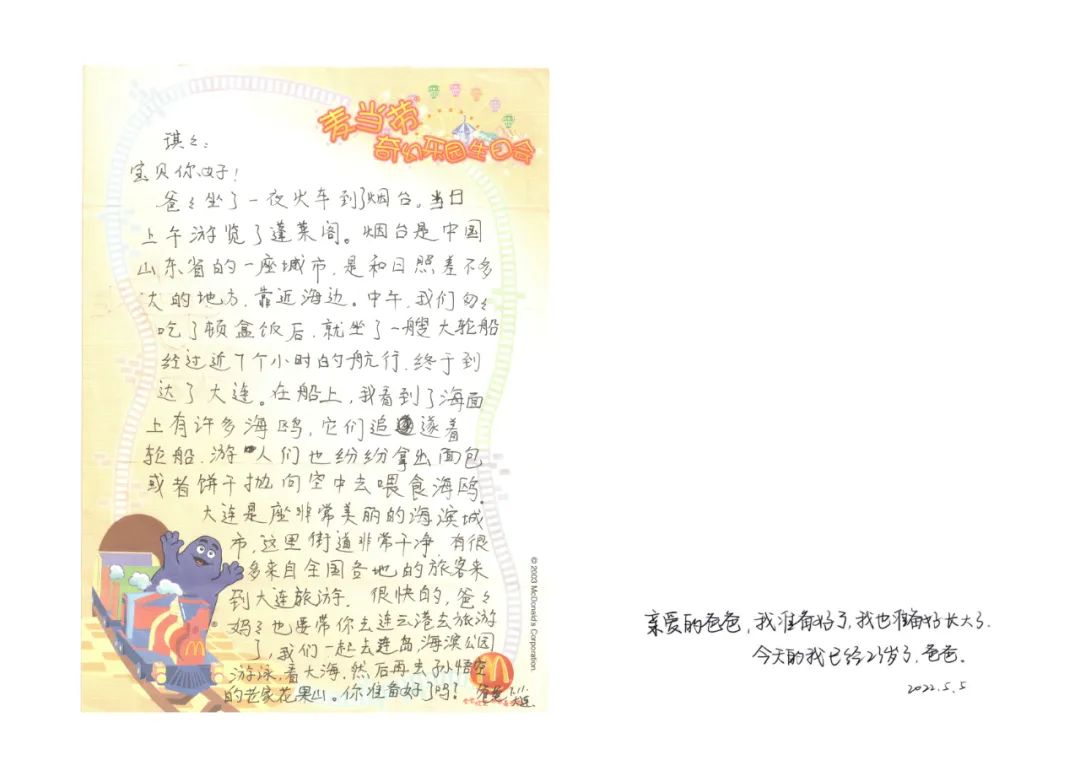 麦当劳
奇幻乐园生日会
琪々:
宝贝你好!
爸々坐了一夜火车到了烟台。当日
上午游览了蓬莱阁。烟台是中国
山东省的一座城市,是和日照差不多
大的地方,靠近海边。中午,我们匆々
吃了顿盒饭后,就坐了一艘大轮船
经过近7个小时的航行,终于到
达了大连。在船上,我看到了海面
上有许多海鸥,它们追逐着
轮船,游人们也纷纷拿出面包
或者饼干抛向空中去喂食海鸥。
大连是座非常美丽的海滨城
市,这里街道非常干净,有很
多来自全国各地的旅客来
到大连旅游。很快的,爸々
妈々也要带你去连云港去旅游
了,我们一起去连岛海滨公园
游泳,看大海,然后再去孙悟空
的老家花果山。你准备好了吗!
爸爸 7.11.
大连.
©2003 McDonald's Corporation
亲爱的爸爸,我准备好了,我也准备好长大了.
今天的我已经21岁了,爸爸.
2022.5.5